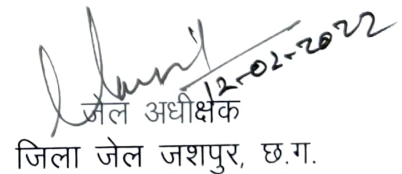 12-02-2022
जेल अधीक्षक
जिला जेल जशपुर, छ.ग.